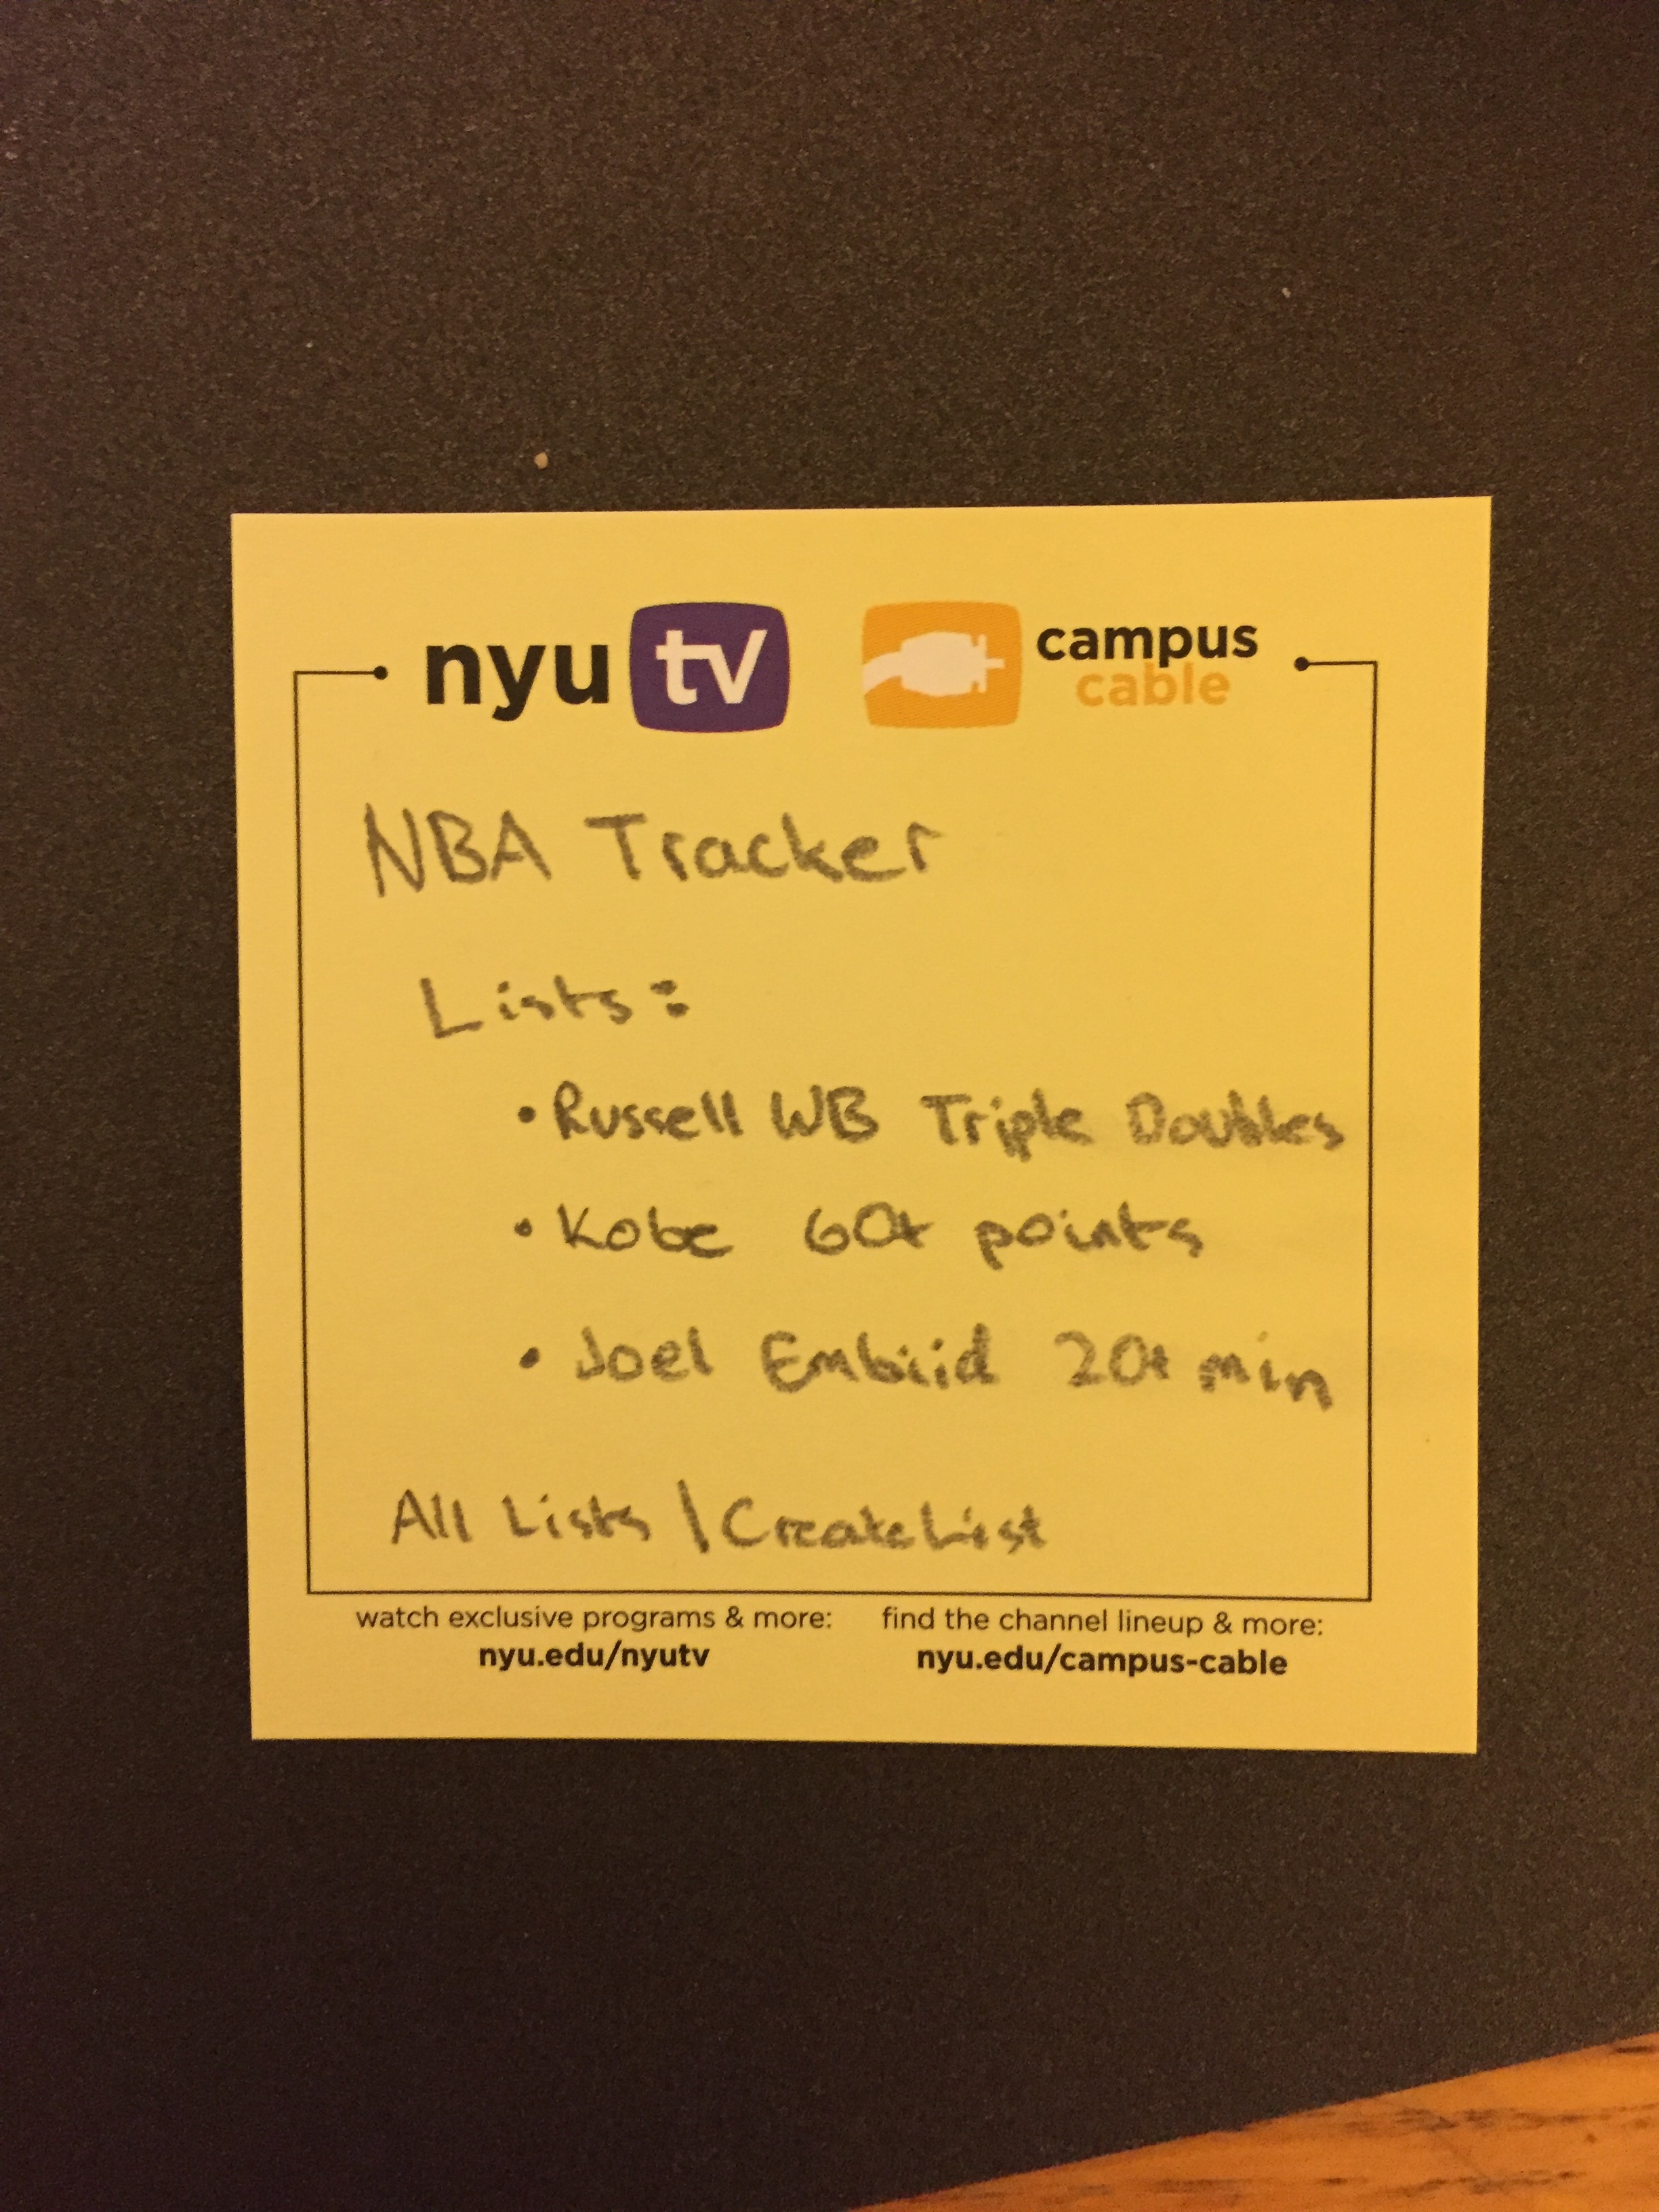 nyu tv campus
cable
NBA Tracker
Lists:
• Russell WB Triple Doubles
• Kobe 60+ points
• Joel Embiid 20+ min
All Lists | Create List
watch exclusive programs & more: find the channel lineup & more:
nyu.edu/nyutv nyu.edu/campus-cable